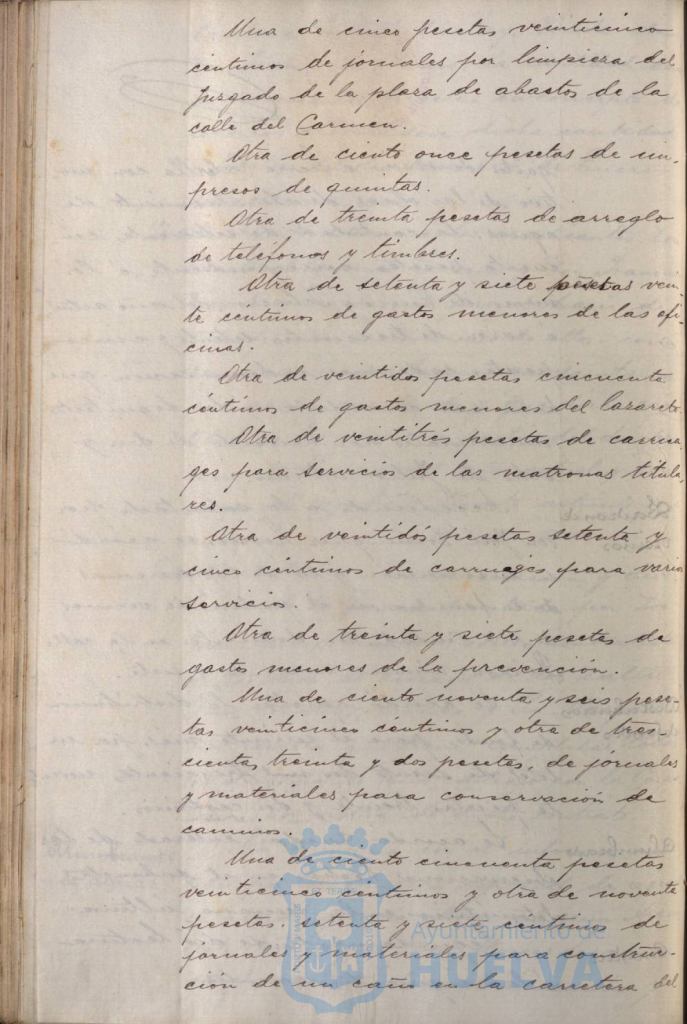 Una de cinco pesetas veinticinco
céntimos de jornales por limpieza del
Juzgado de la plaza de abastos de la
calle del Carmen.
Otra de ciento once pesetas de im-
presos de quintas.
Otra de treinta pesetas de arreglo
de teléfonos y timbres.
Otra de setenta y siete pesetas vein-
te céntimos de gastos menores de las ofi-
cinas.
Otra de veintidos pesetas cincuenta
céntimos de gastos menores del lazareto.
Otra de veintitrés pesetas de carrua-
ges para servicios de las matronas titula-
res.
Otra de veintidós pesetas setenta y
cinco céntimos de carruages para vario
servicio.
Otra de treinta y siete pesetas de
gastos menores de la prevención.
Una de ciento noventa y seis pese-
tas veinticinco céntimos y otra de tres-
cientas treinta y dos pesetas, de jornales
y materiales para conservación de
caminos.
Una de ciento cincuenta pesetas
veinticinco céntimos y otra de noventa
pesetas, setenta y siete céntimos de
jornales y materiales para construc-
ción de un caño en la carretera del
Ayuntamiento de
HUELVA